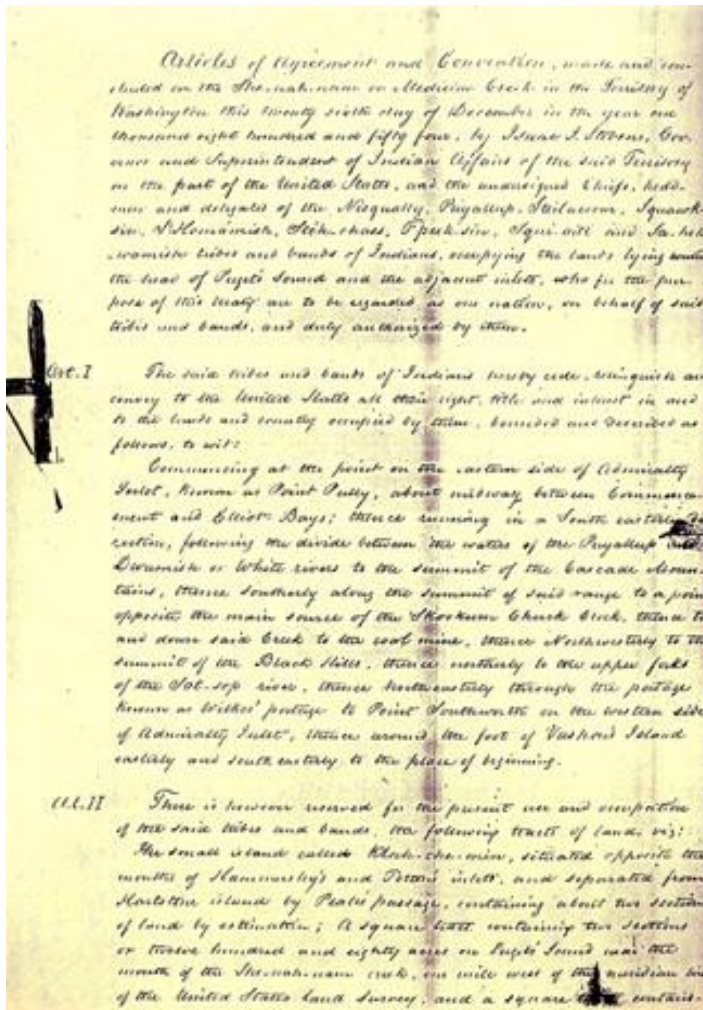 Articles of Agreement and Convention, made and con-
cluded on the She-nah-nam or Medicine Creek in the Territory of
Washington this twenty sixth day of December in the year one
thousand eight hundred and fifty four, by Isaac I. Stevens, Gov-
ernor and Superintendent of Indian Affairs of the said Territory
on the part of the United States, and the undersigned Chiefs, head-
men and delegates of the Nisqually, Puyallup, Steilacoom, Squawk-
sin, S'Homamish, Steh-chass, T'peek-sin, Squi-aitl and Sa-heh
-wamish tribes and bands of Indians, occupying the lands lying round
the head of Puget's Sound and the adjacent inlets, who for the pur-
pose of this treaty are to be regarded as one nation, on behalf of said
tribes and bands, and duly authorized by them.
Art. I The said tribes and bands of Indians hereby cede, relinquish an
convey to the United States all their right, title and interest in and
to the lands and country occupied by them, bounded and described as
follows, to wit:
Commencing at the point on the eastern side of Admiralty
Inlet, known as Point Pully, about midway between Commence-
ment and Elliott Bays; thence running in a South easterly di
rection, following the divide between the waters of the Puyallup and
Dwamish or White rivers to the summit of the Cascade Moun-
tains, thence southerly along the summit of said range to a poin
opposite the main source of the Skookum Chuck Creek, thence to
and down said Creek to the coal mine, thence Northwesterly to the
summit of the Black Hills, thence northerly to the upper forks
of the Sat-sop river, thence northeasterly through the portage
known as Wilkes' portage to Point Southworth on the western side
of Admiralty Inlet, thence around the foot of Vashon's Island
easterly and south easterly to the place of beginning.
Art. II There is however reserved for the present use and occupation
of the said tribes and bands, the following tracts of land, viz:
The small island called Klah-che-min, situated opposite the
mouths of Hammersley's and Totten's inlets, and separated from
Hartstene island by Peale's passage, containing about two section
of land by estimation; A square tract containing two sections
or twelve hundred and eighty acres on Puget's Sound near the
mouth of the She-nah-nam creek, one mile west of the meridian line
of the United States land survey, and a square contain-